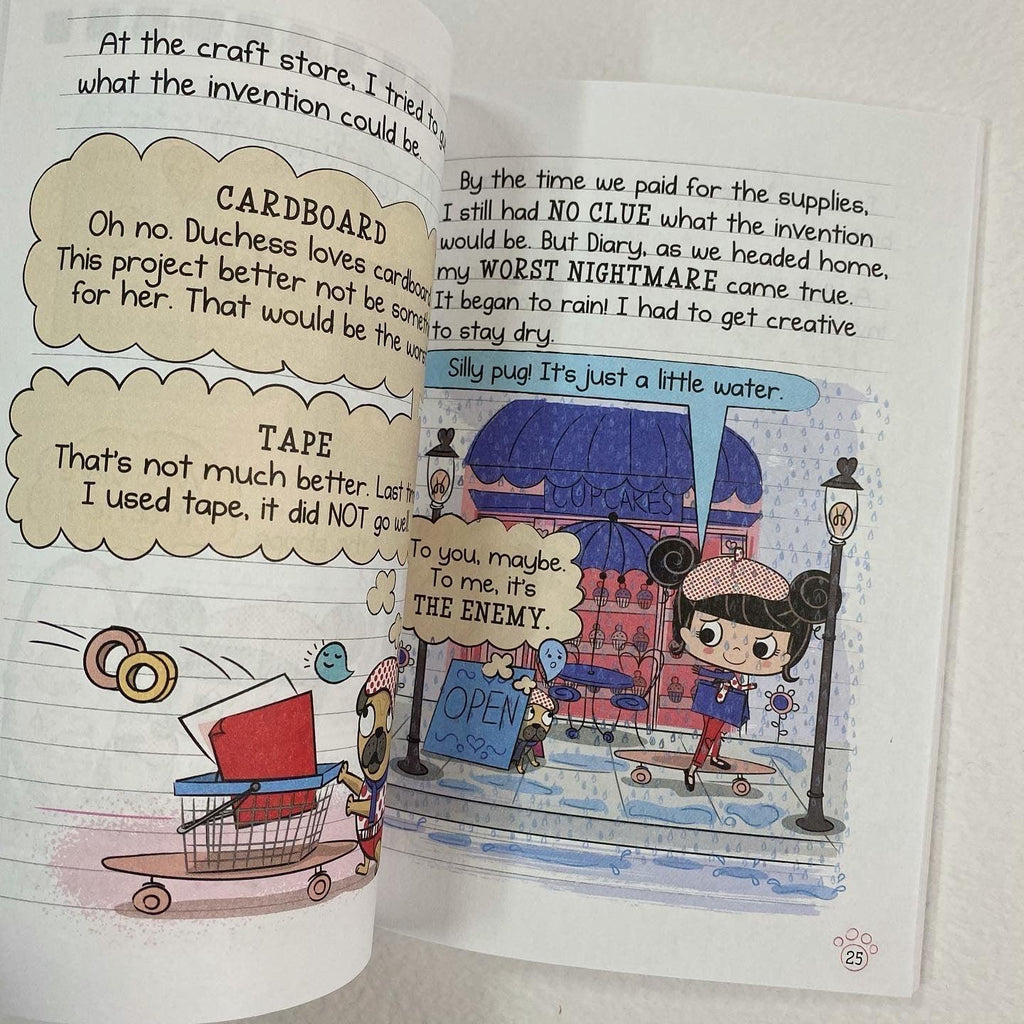 At the craft store, I tried to
what the invention could be.
CARDBOARD
Oh no. Duchess loves cardboard
This project better not be
for her. That would be the
TAPE
That's not much better. Last
I used tape, it did NOT go
By the time we paid for the supplies,
I still had NO CLUE what the invention
would be. But Diary, as we headed home,
my WORST NIGHTMARE came true.
It began to rain! I had to get creative
to stay dry.
Silly pug! It's just a little water.
CUPCAKES
To you, maybe.
To me, it's
THE ENEMY.
OPEN
25